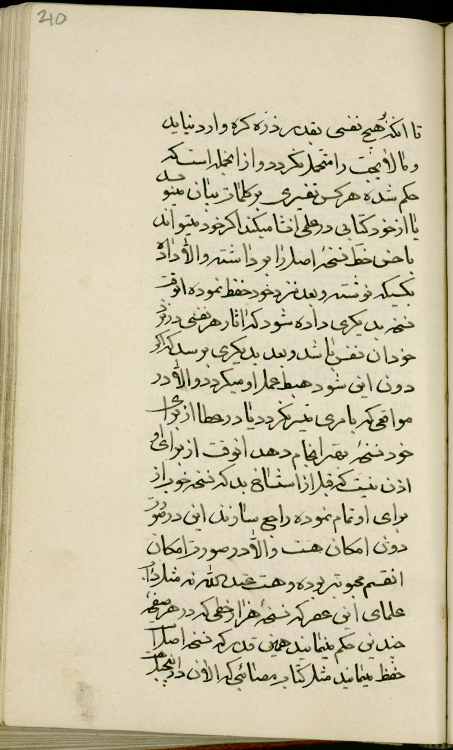 210
تا انکه هیچ نفسی بقدر ذره کره وارد نیاید
و مالا یحب را متحمل نکردد و از انجمله است که
حکم شده هر کس تفسیری بر کلمات بیان مینویسد
یا از خود کتابی در علمی انشا میکند اکر خود میتواند
باحسن خط نسخه اصل را بر داشته والا داده
بکسیکه نوشته و بعد نزد خود حفظ نموده انوقت
نسخه بدیکری داده شود که اثار هر نفسی در نزد
خود ان نفس باشد و بعد بدیکری برسد که اکر
دون این شود حبط عمل او میکردد والا در
مواقعی که یا مری میسر نکردد یا در عطا از برای
خود نسخه بهتر انجام دهد انوقت از برای او
اذن نیست که قبل از استنساخ بد که نسخه خود را از
برای او تمام نموده راجع سازند این در صورت
دون امکان هست والا در صورت امکان
انقسم محبوبتر بوده و هست عند الله نه مثل
علمای این عصر که نسخه هزار خطی که در هر صفحه
چندین حکم مینمایند همین قدر که نسخه اصل را
حفظ مینمایند مثل کتاب که الان در